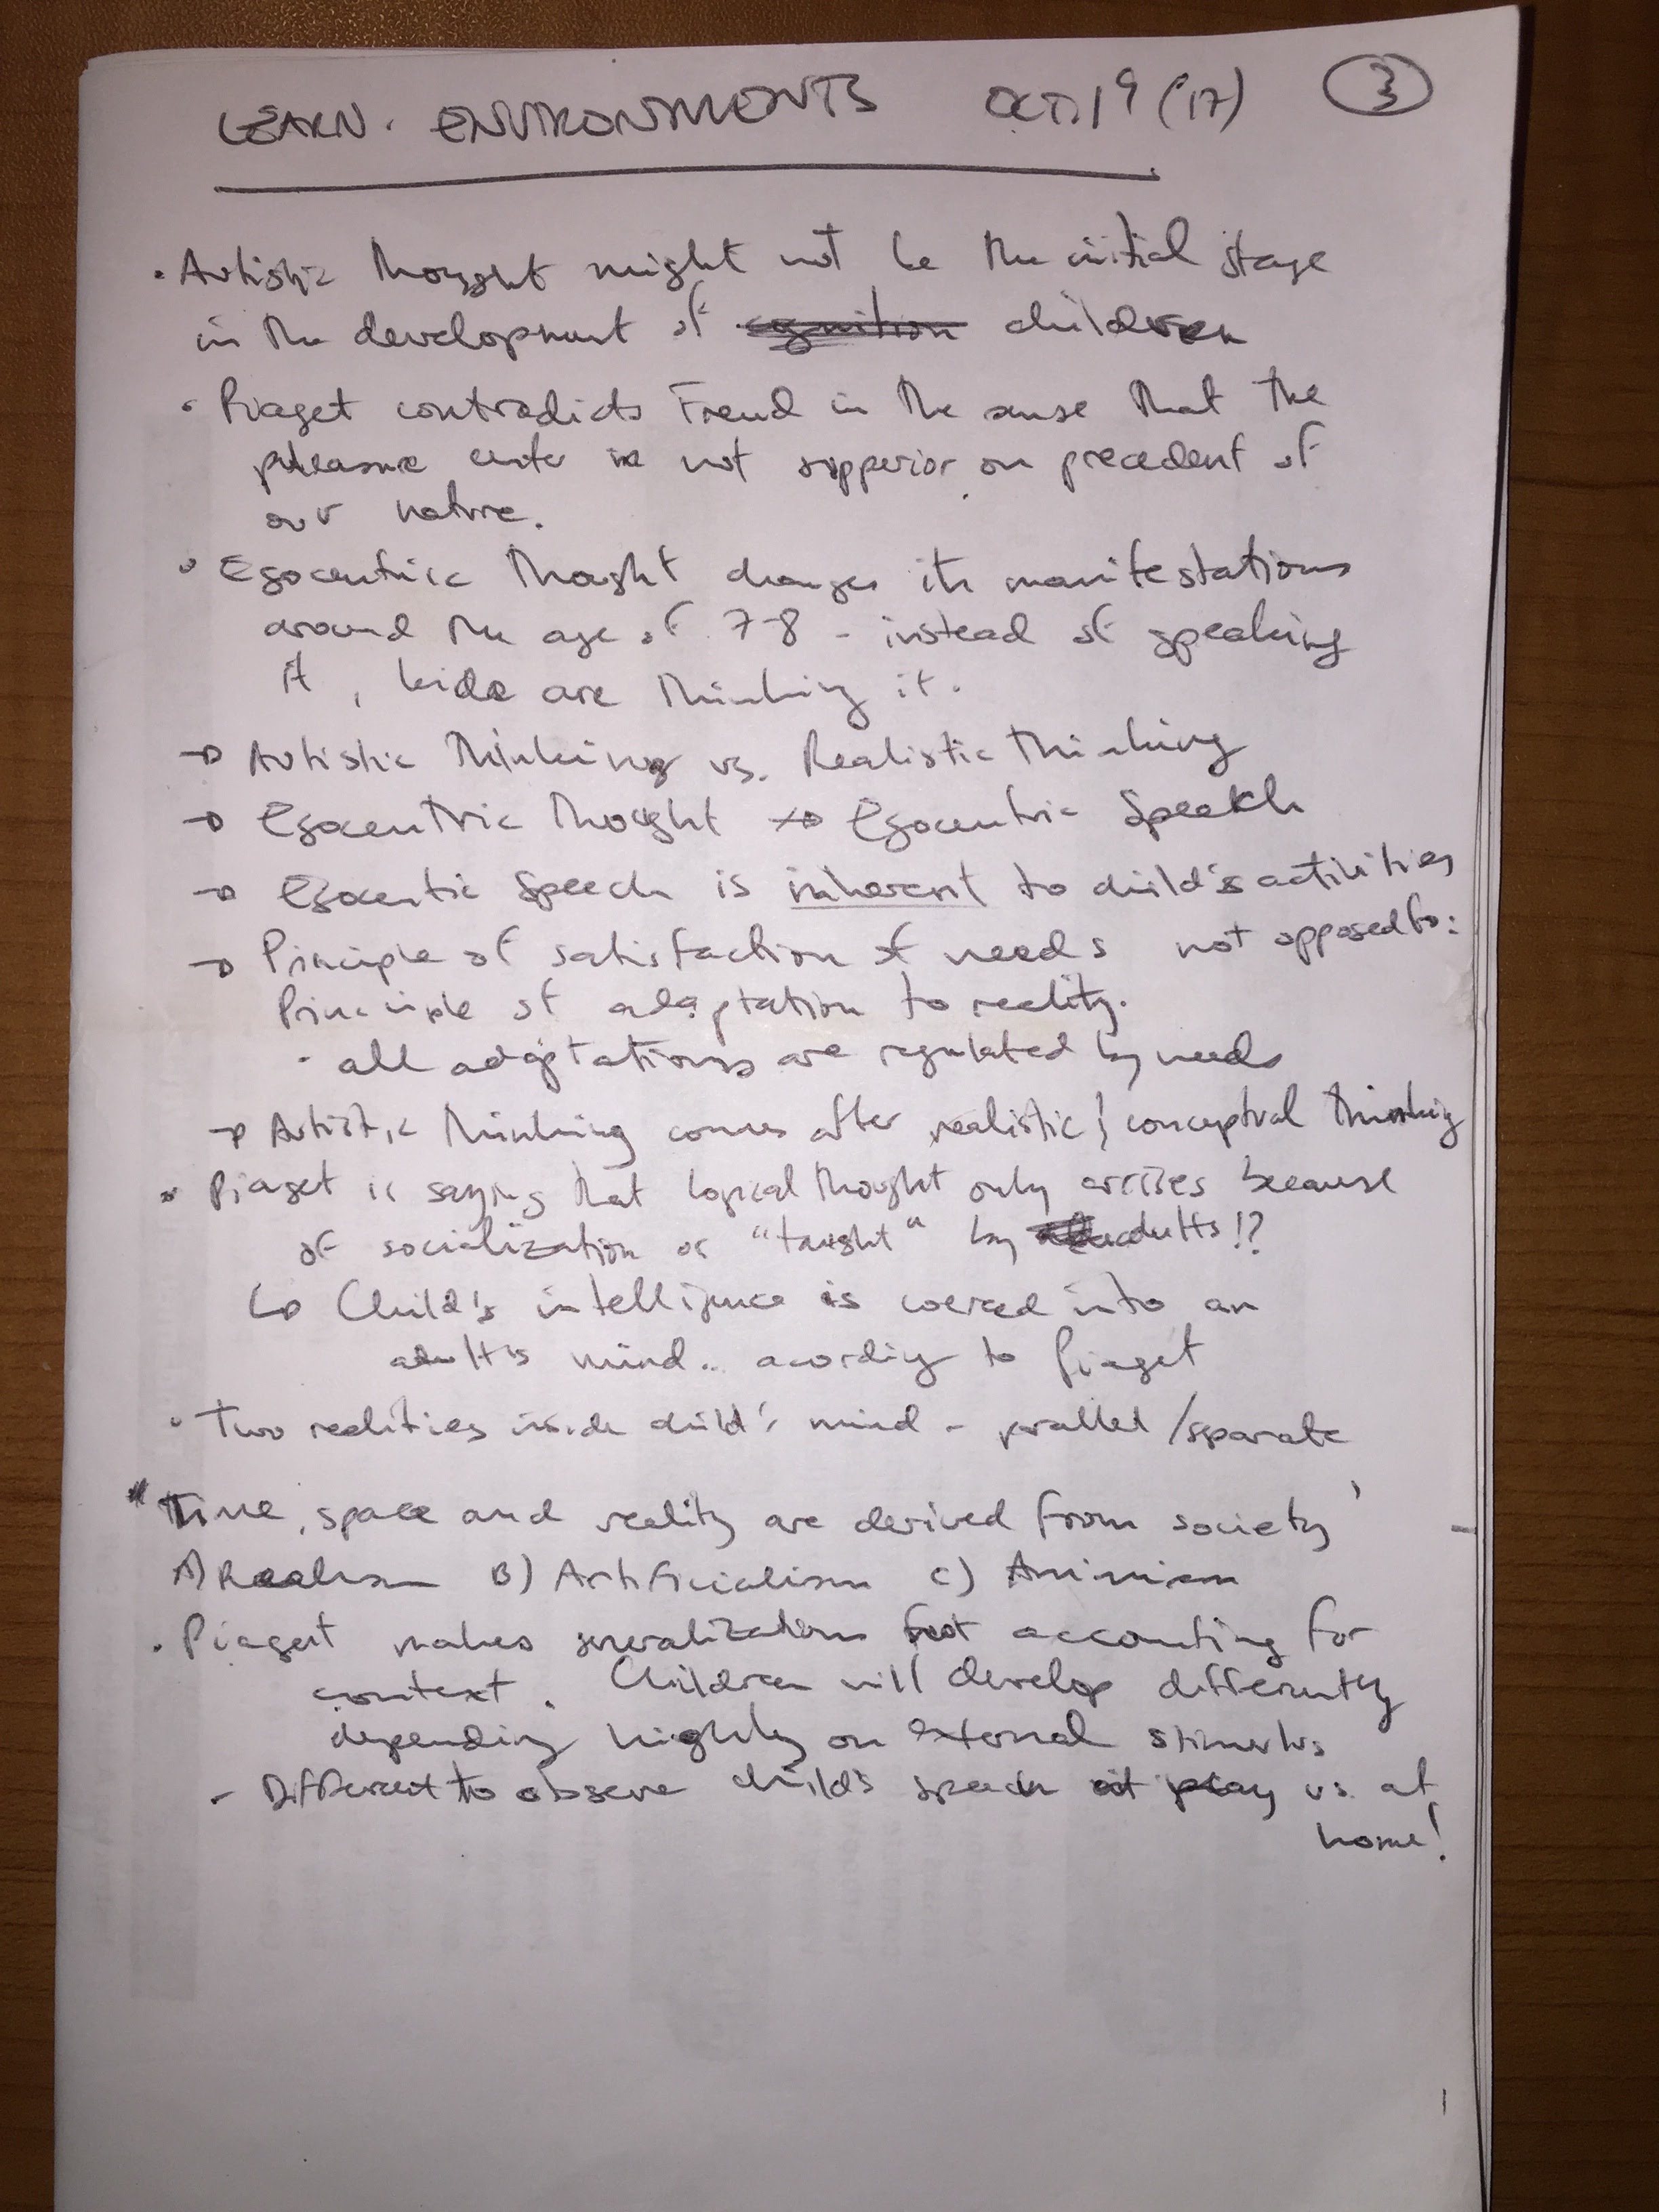 LEARN. ENVIRONMENTS OCT. 19 ('17) 3
• Autistic thought might not be the initial stage
in the development of children
• Piaget contradicts Freud in the sense that the
pleasure center is not supperior on precedent of
our nature.
• Egocentric thought changes its manifestations
around the age of 7-8 - instead of speaking
it, kids are thinking it.
→ Autistic Thinking vs. Realistic thinking
→ Egocentric thought → Egocentric Speech
→ Egocentic Speech is inherent to child's activities
→ Principle of satisfaction of needs not opposed to:
Principle of adaptation to reality.
- all adaptations are regulated by needs
→ Autistic thinking comes after realistic / conceptual thinking
• Piaget is saying that logical thought only arrises because
of socialization or "taught" by adults!?
↳ Child's intelligence is coerced into an
adult's mind.. acording to Piaget
• Two realities inside child's mind - parallel / separate
"Time, space and reality are derived from society'
A) Realism B) Artificialism C) Animism
• Piaget makes generalizations not accounting for
context. Children will develop differently
depending highly on external stimulus
- Different to observe child's speech at play vs. at
home!